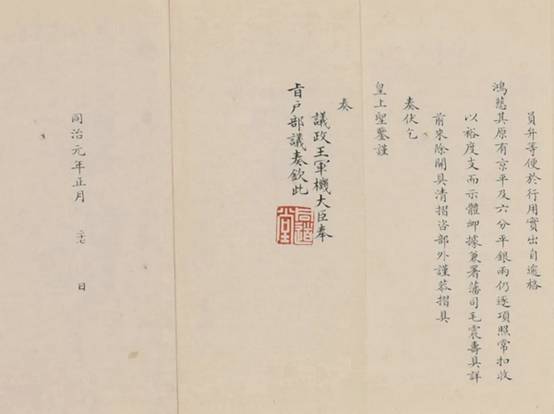 員弁等便於行用實出自逾格
鴻慈其原有京平及六分平銀兩仍逐項照常扣收
以裕度支而示體卹據兼署藩司毛震壽具詳
前來除開具清摺咨部外謹恭摺具
奏伏乞
皇上聖鑒謹
奏
議政王軍機大臣奉
旨戶部議奏欽此
同治元年正月 日